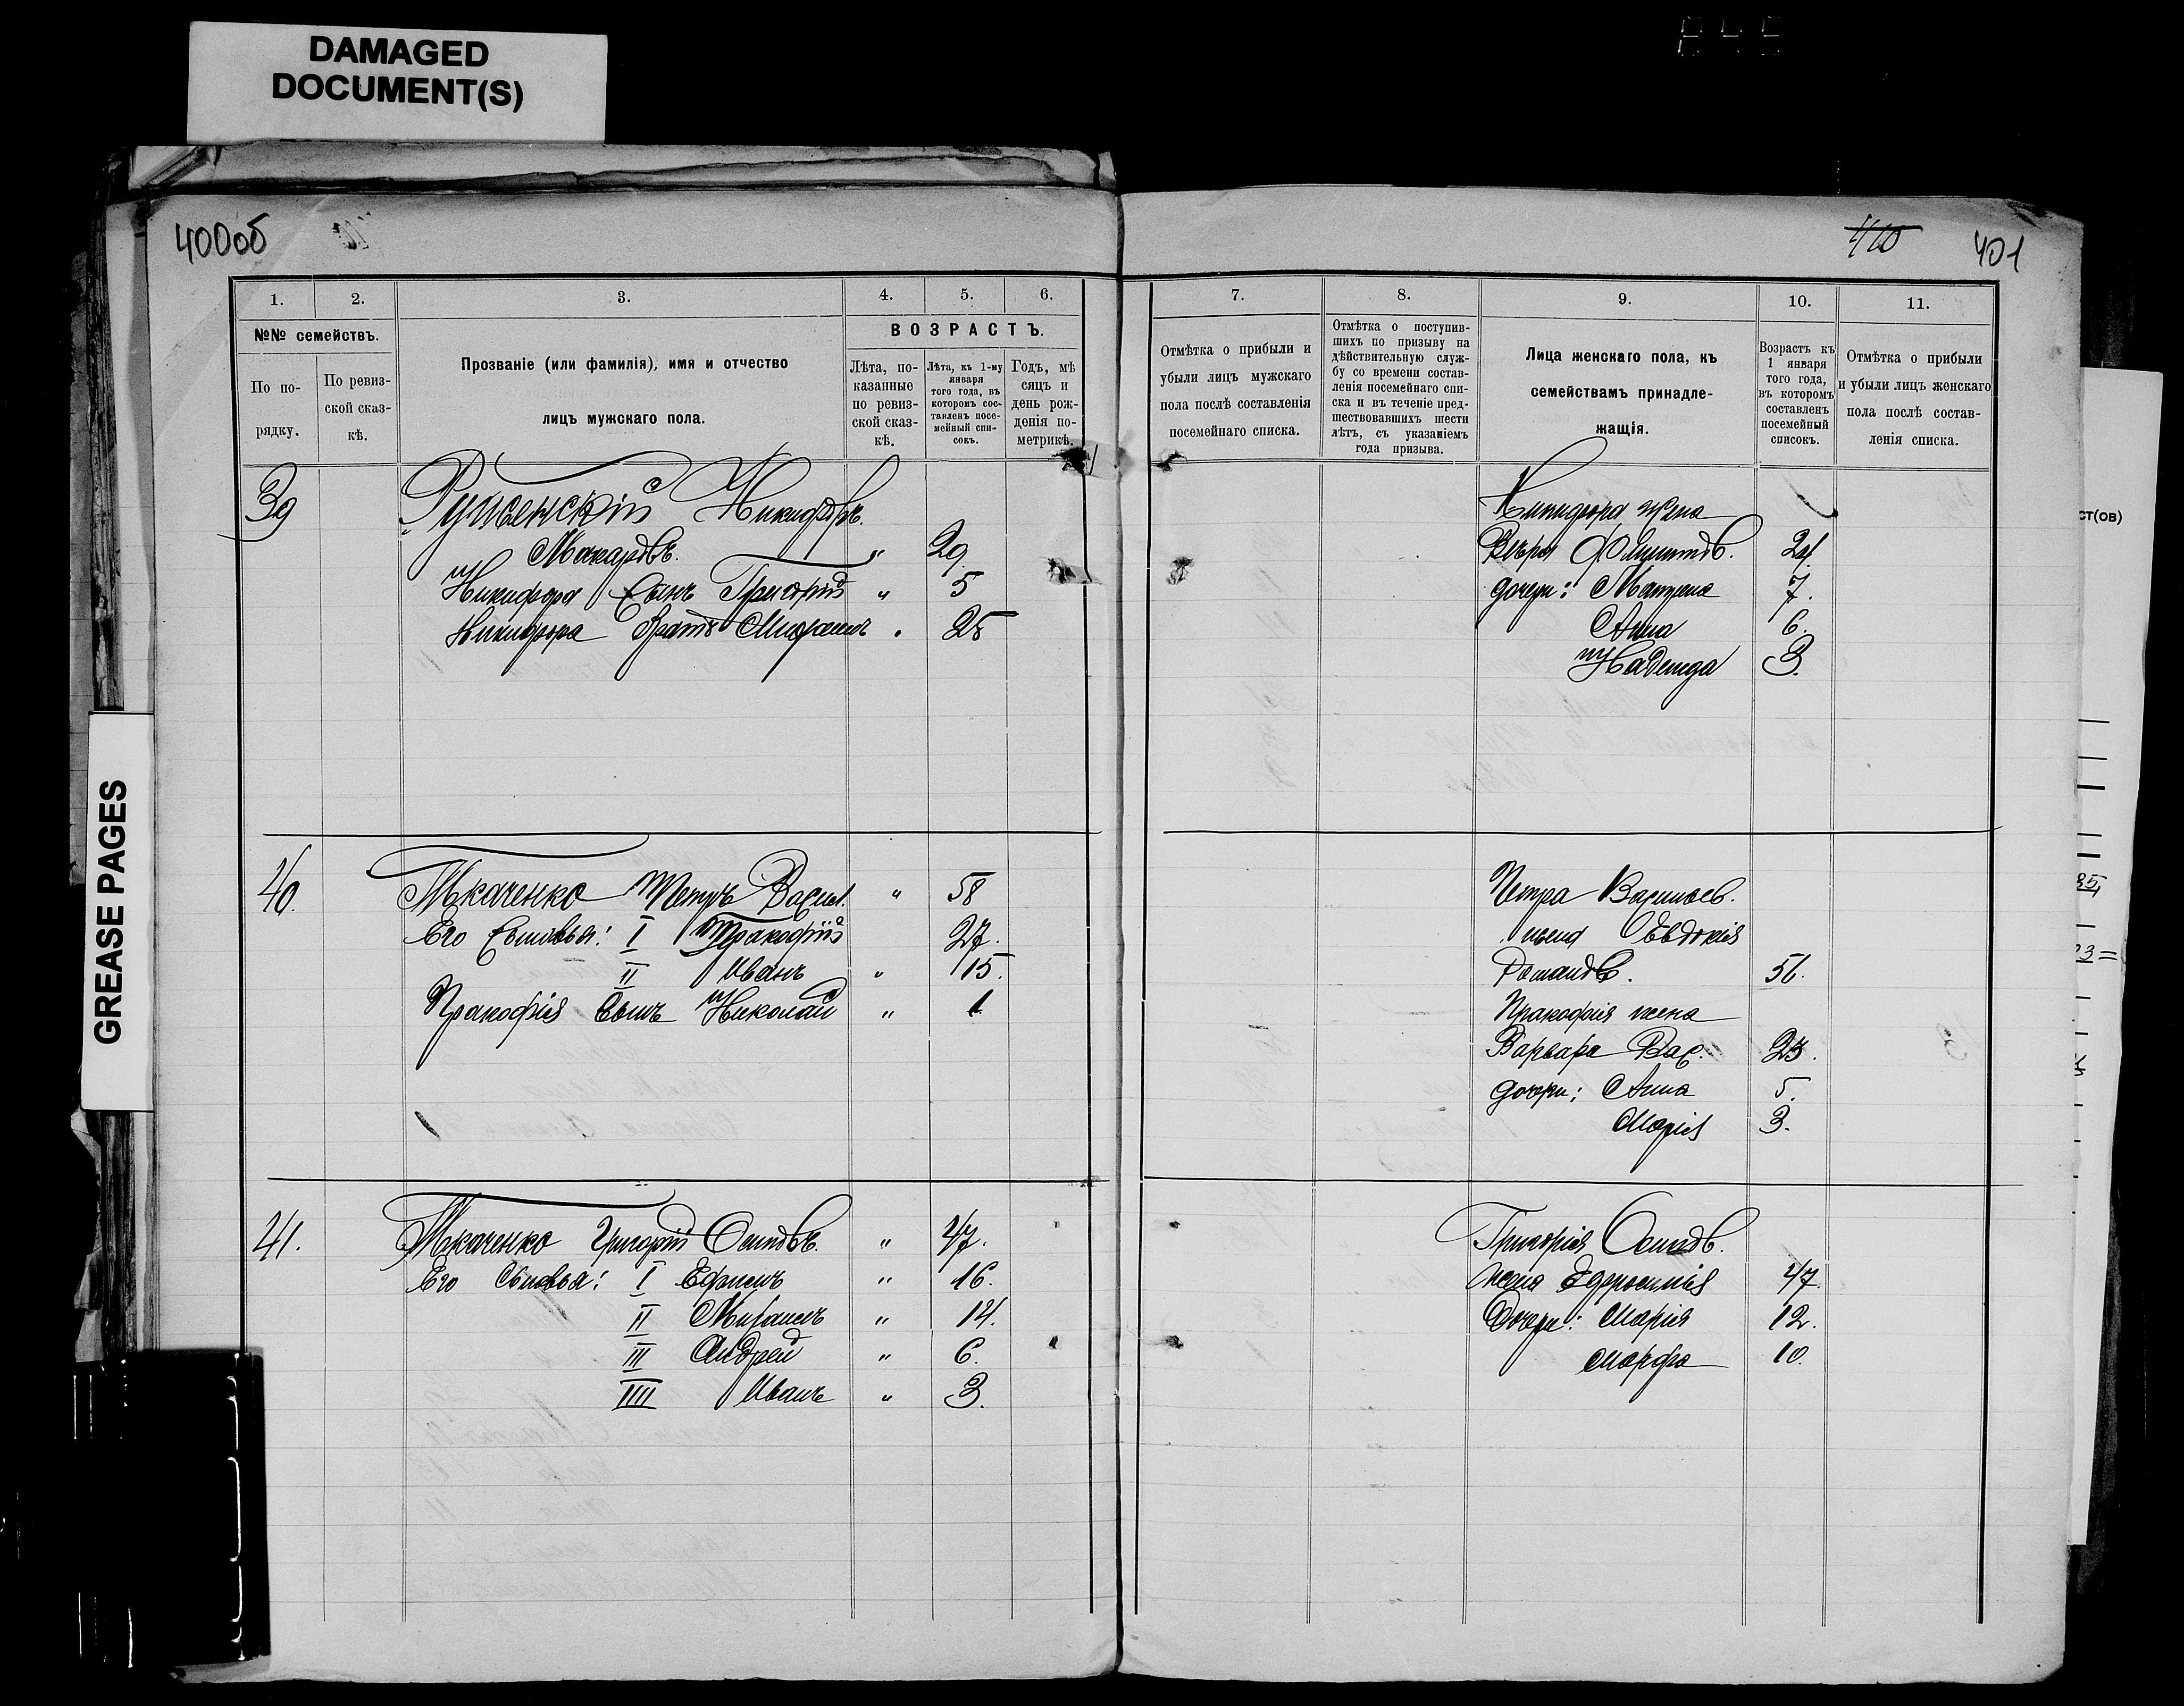 DAMAGED
DOCUMENT(S)
GREASE PAGES
400об
410 401
1. 2. 3. 4. 5. 6.
№№ семействъ.
По по-
рядку.
По ревиз-
ской сказ-
кѣ.
Прозваніе (или фамилія), имя и отчество
лицъ мужскаго пола.
ВОЗРАСТЪ.
Лѣта, по-
казанные
по ревиз-
ской сказ-
кѣ.
Лѣта, къ 1-му
января
того года, въ
которомъ сос-
тавленъ посе-
мейный спи-
сокъ.
Годъ, мѣ
сяцъ и
день рож-
денія по-
метрикѣ.
39 Руженскій Никифоръ
Макаровъ. " 29
Никифора Сынъ Григорій " 5
Никифора Братъ Михаилъ " 25
40. Ткаченко Петръ Васил. " 58
Его Сыновья: I Прокофій 27.
II Иванъ " 15.
Прокофія Сынъ Николай " 1
41. Ткаченко Григорій Осиповъ. " 47.
Его Сыновья: I Ефимъ " 16.
II Михаилъ " 14.
III Андрей " 6.
IIII Иванъ " 3.
7. 8. 9. 10. 11.
Отмѣтка о прибыли и
убыли лицъ мужскаго
пола послѣ составленія
посемейнаго списка.
Отмѣтка о поступив-
шихъ по призыву на
дѣйствительную служ-
бу со времени состав-
ленія посемейнаго спи-
ска и въ теченіе пред-
шествовавшихъ шести
лѣтъ, съ указаніемъ
года призыва.
Лица женскаго пола, къ
семействамъ принадле-
жащія.
Возрастъ къ
1 января
того года,
въ которомъ
составленъ
посемейный
списокъ.
Отмѣтка о прибыли
и убыли лицъ женскаго
пола послѣ состав-
ленія списка.
Никифора жена
Вѣра
дочери: Матрена 7.
Анна 6.
Надежда 3.
Петра Васильев.
жена Евдокія
Романов. 56.
Прокофія жена
Варвара Вас. 23.
дочери: Анна 5.
Марія 3.
Григорія Осипов.
жена Ефросинія 47.
Дочери: Марія 12.
Марфа 10.
ст(ов)